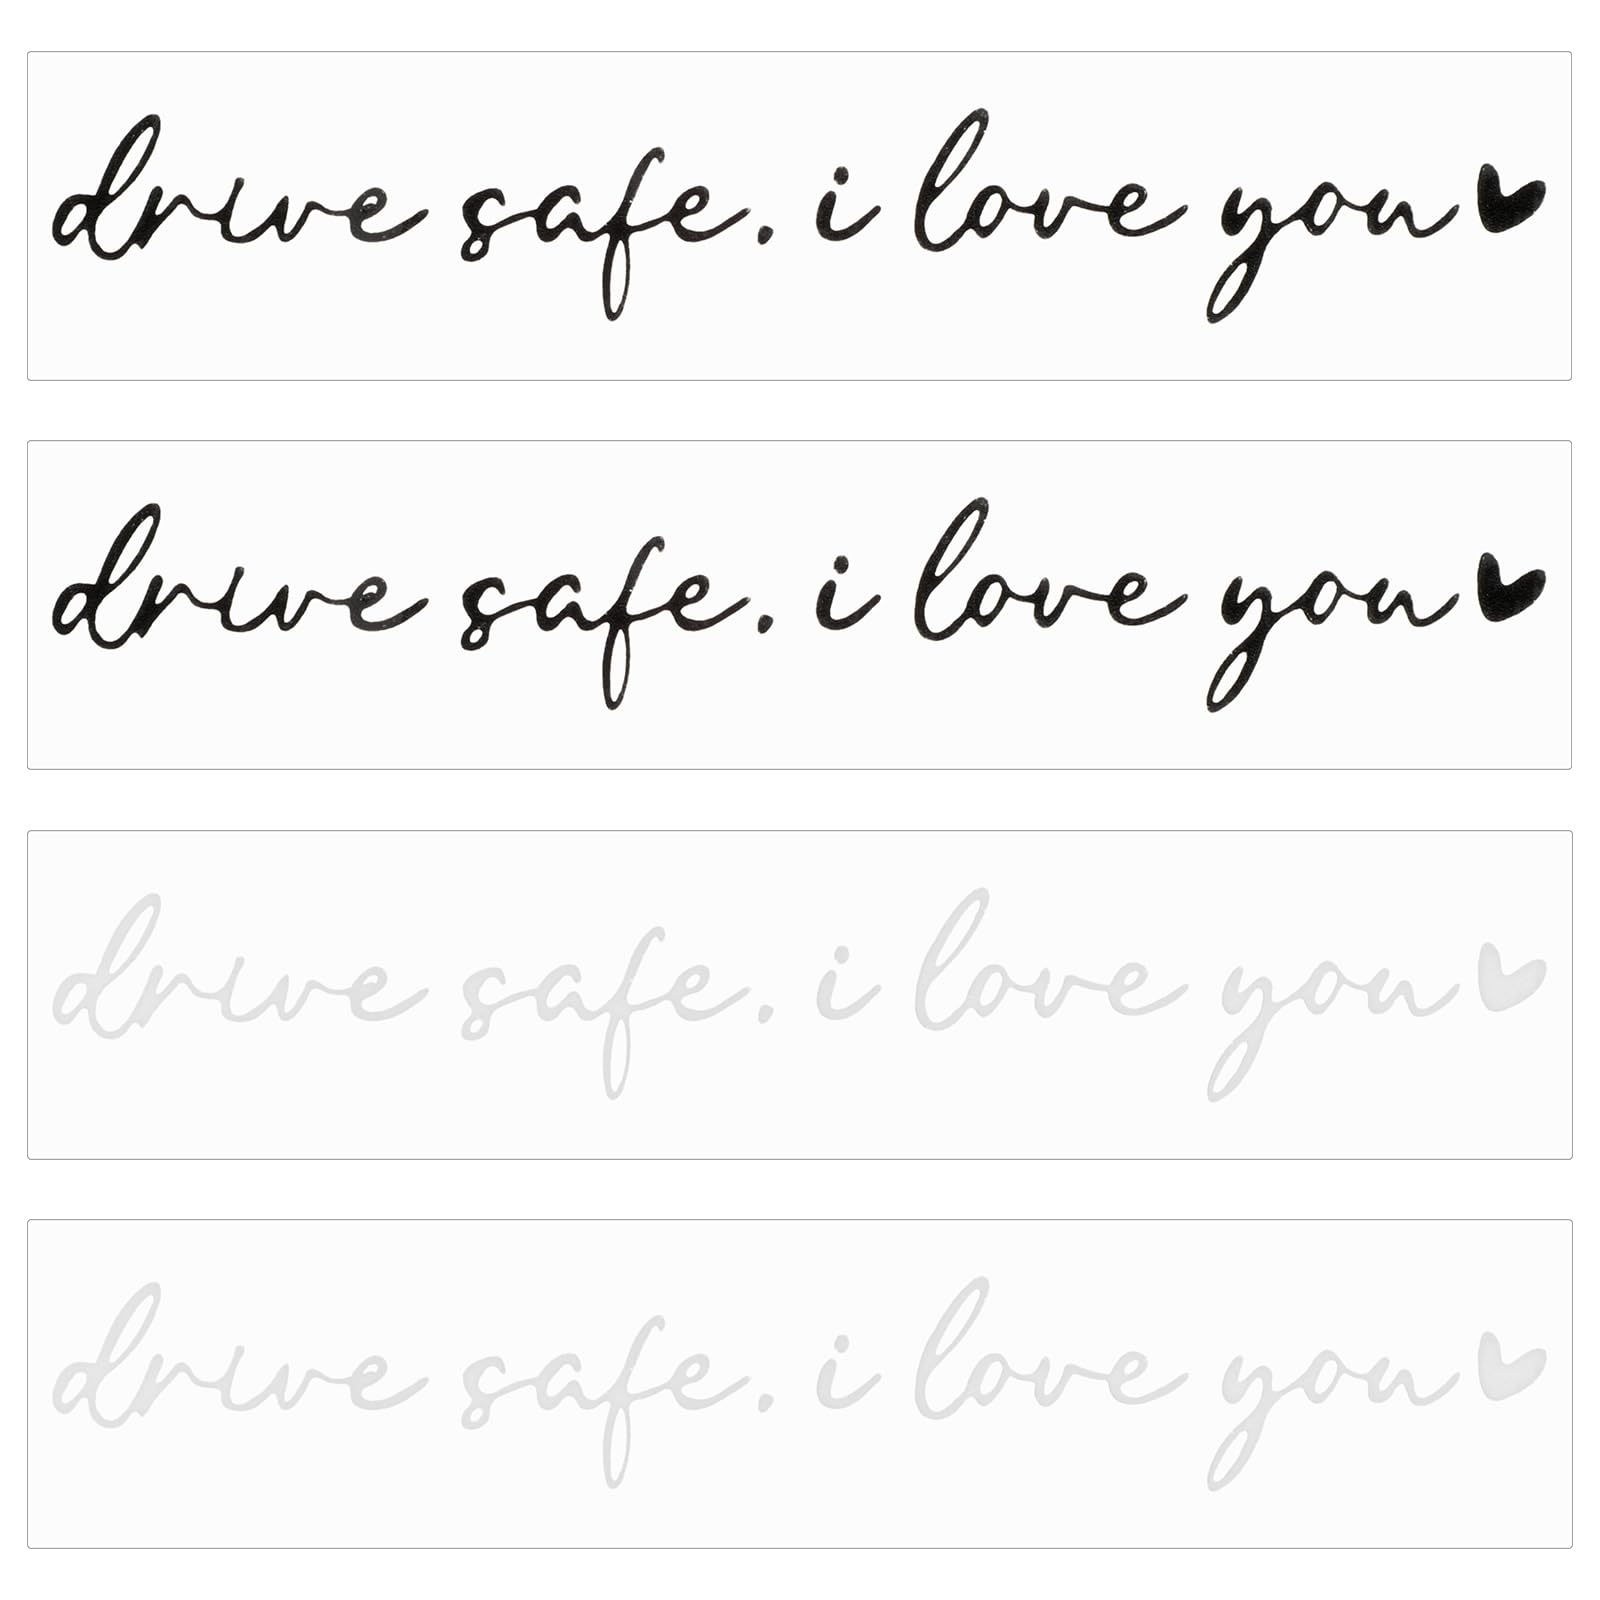 drive safe. i love you
drive safe. i love you
drive safe. i love you
drive safe. i love you